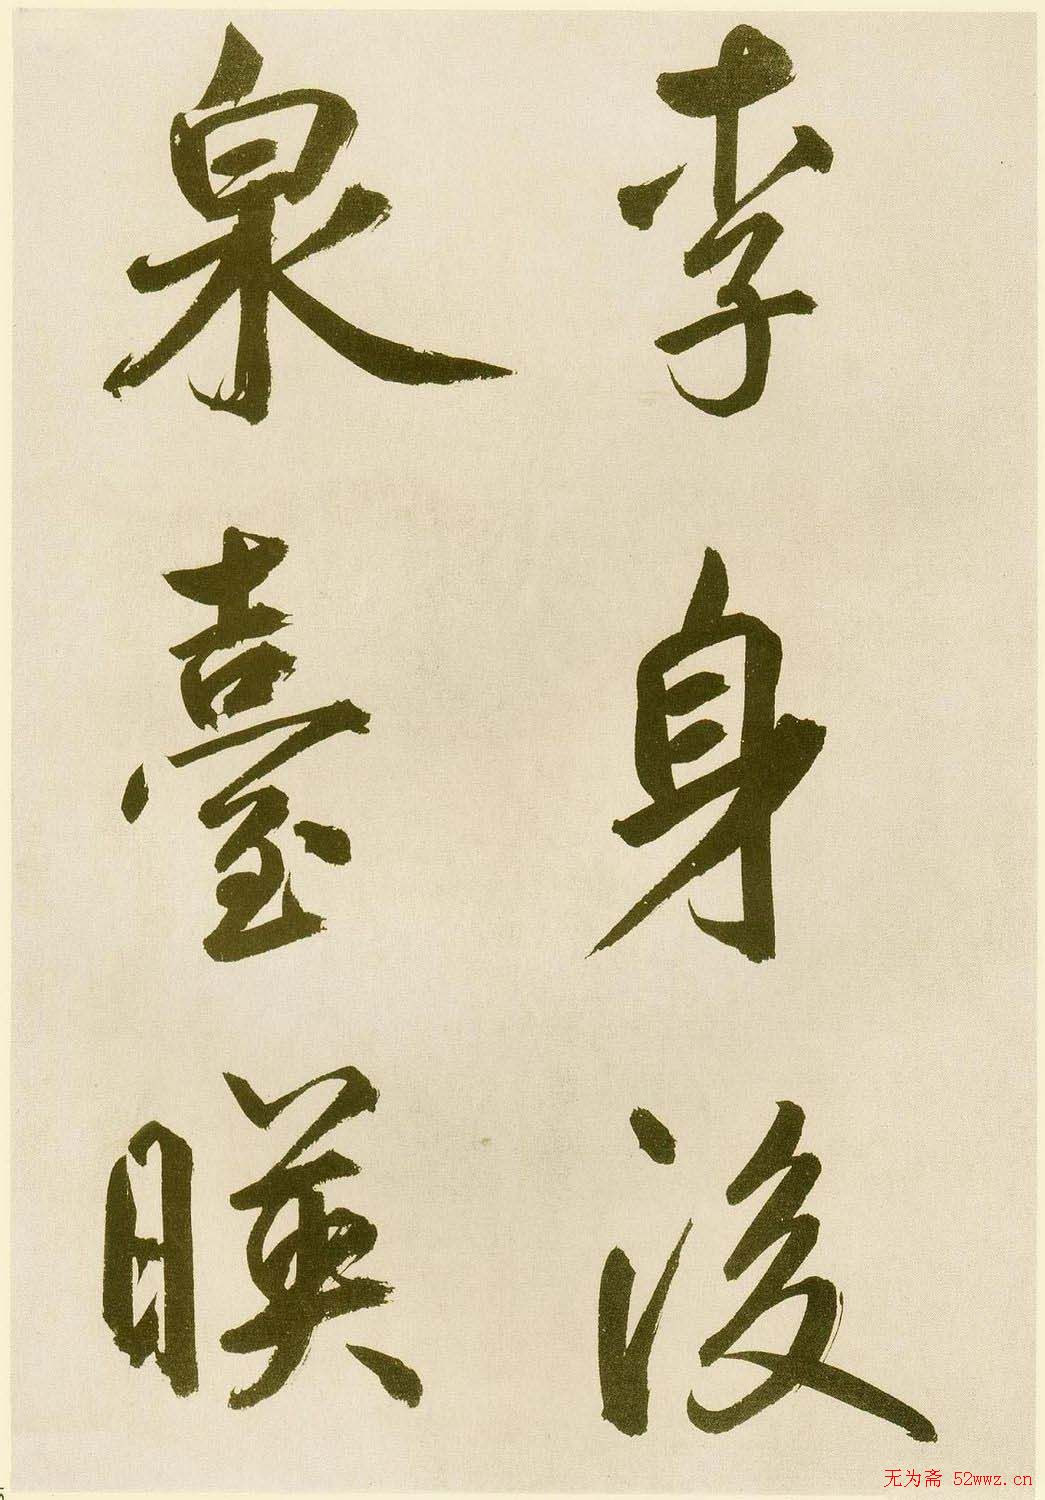 李身後
泉臺暎
无为斋 52wwz.cn